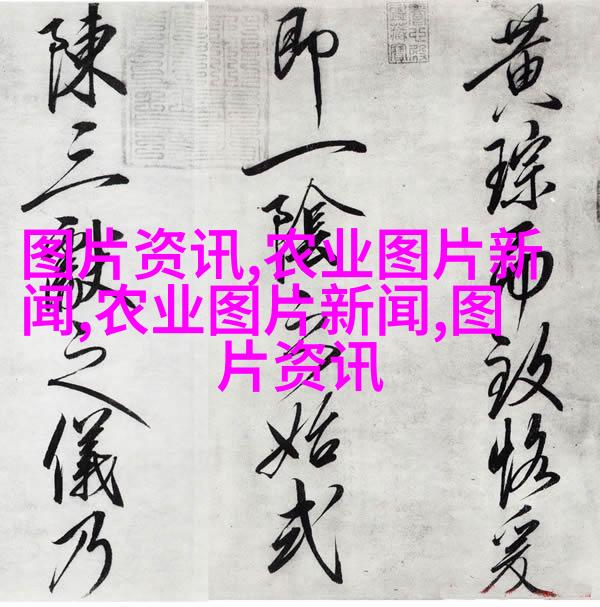 黄琮而致恪爰
即一陰之始式
陳三獻之儀乃
图片资讯,农业图片新
闻,农业图片新闻,图
片资讯